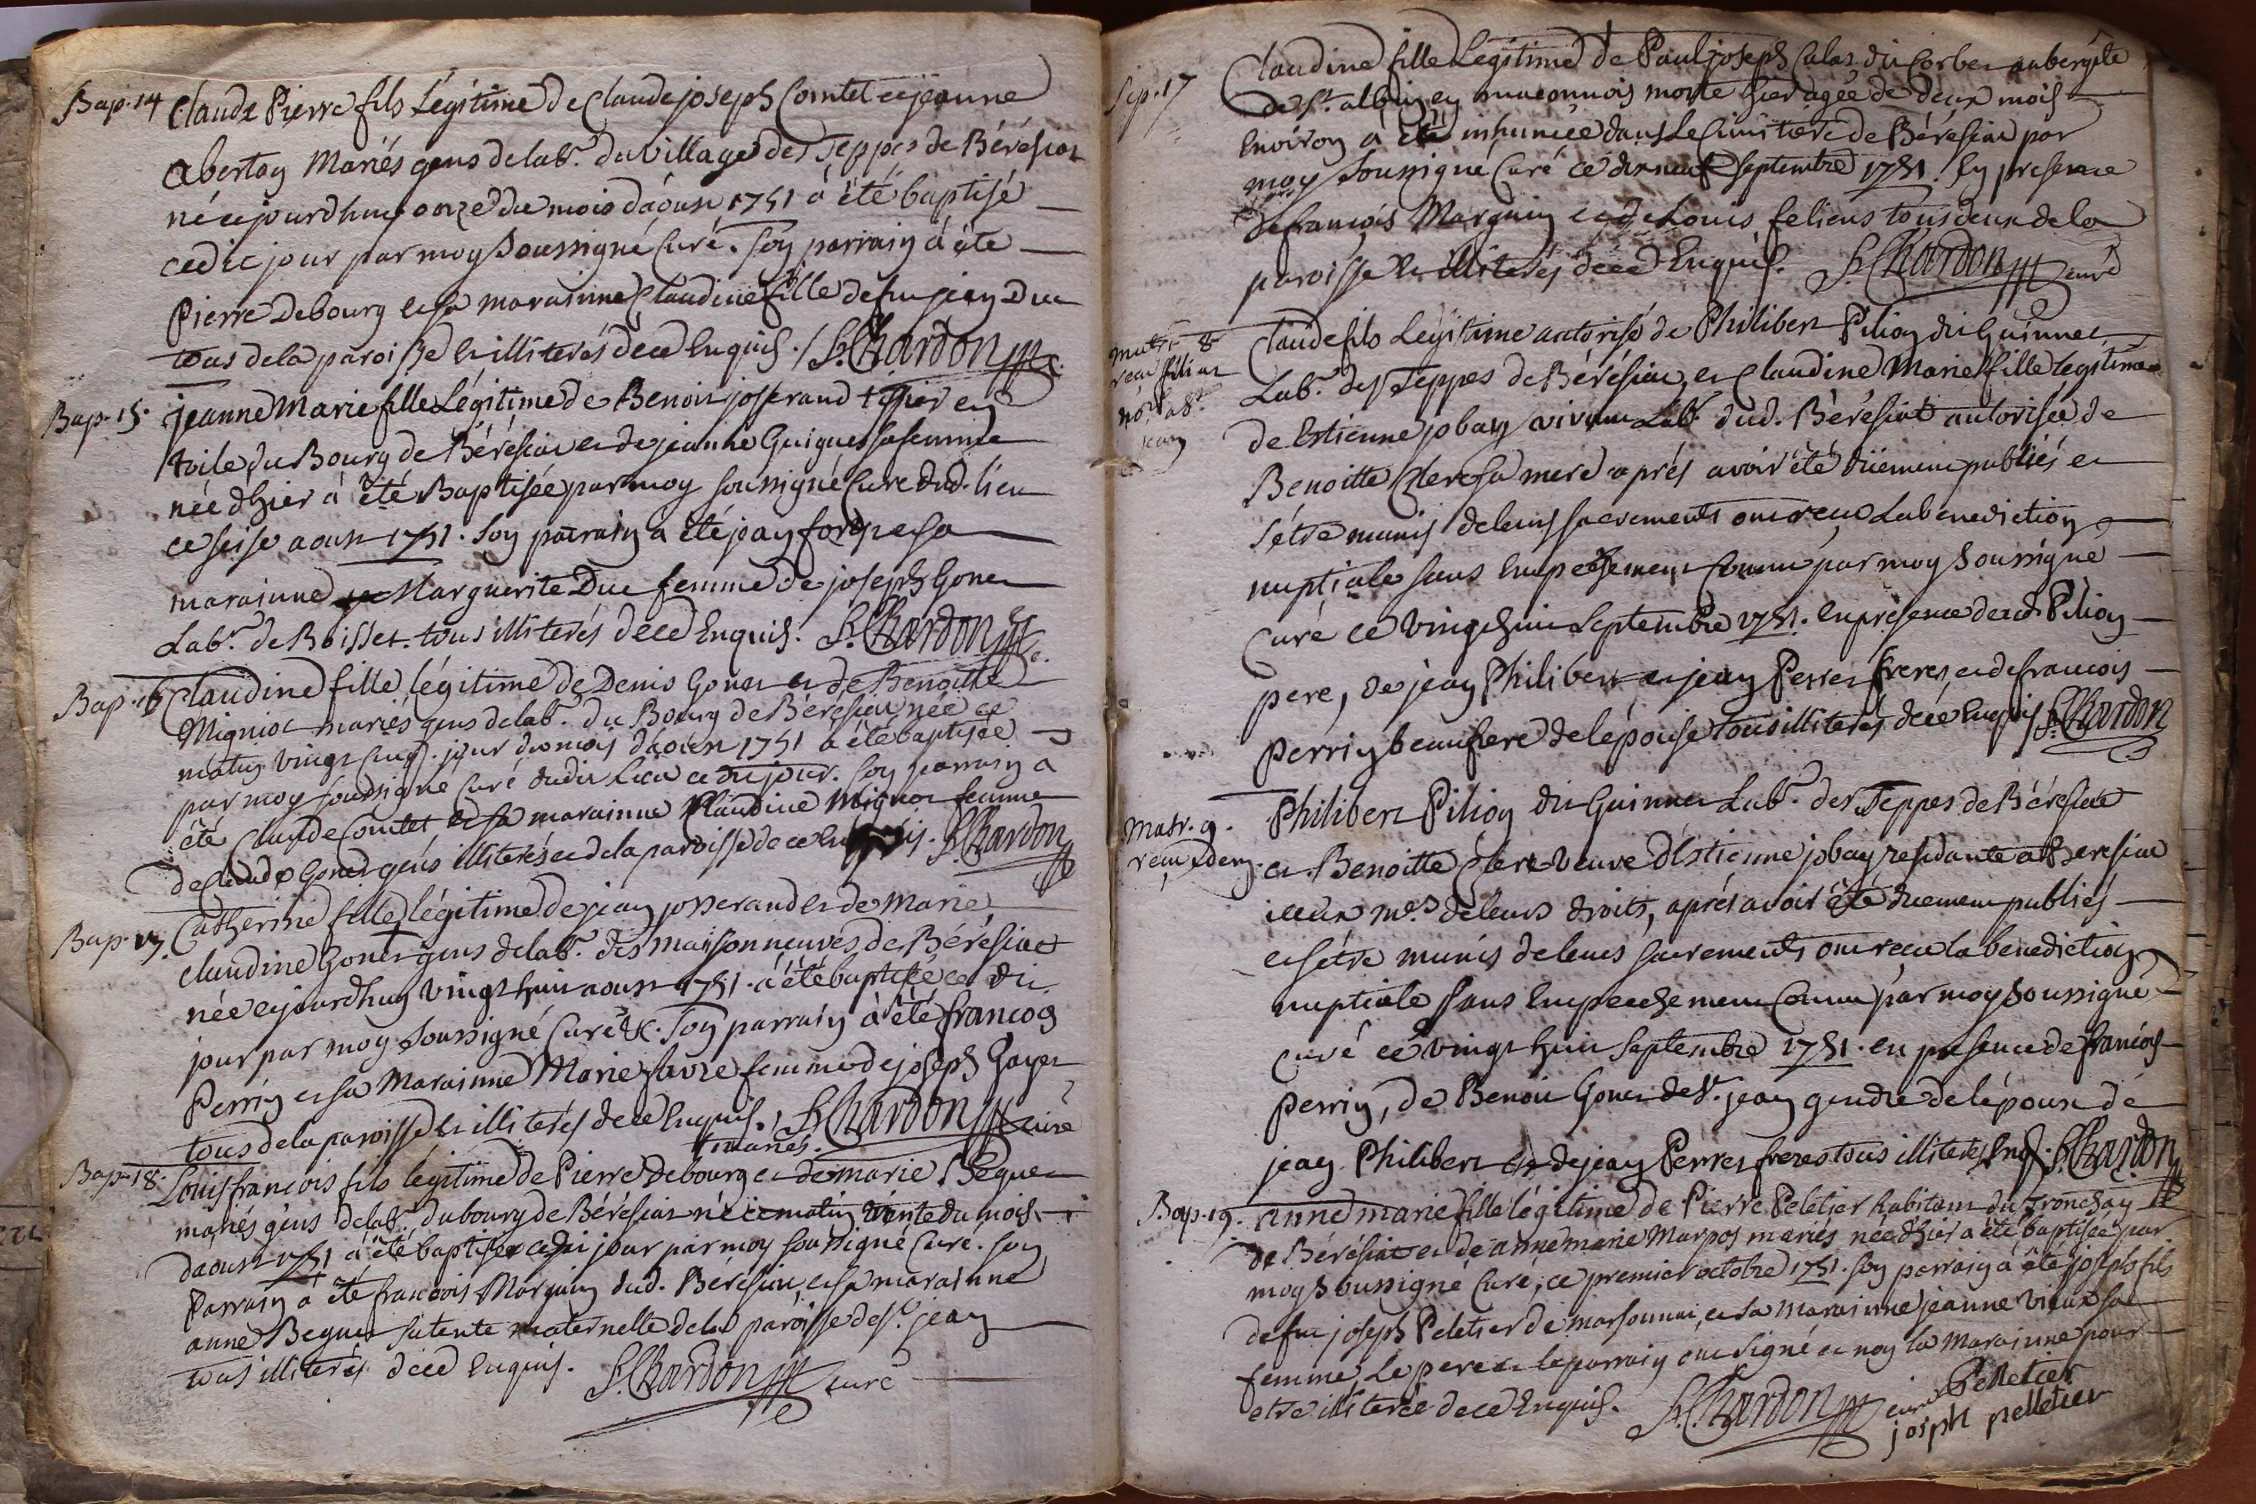 Bap. 14 Claude Pierre fils Légitime de Claude joseph Comtet et jeanne
Abertoy Mariés gens de lab.r du village des Teppes de Béréziat
né cejourdhuy onze du mois d'aoust 1751 a été baptisé
cedit jour par moy soussigné Curé. Son parrain a été
Pierre Debourg et sa marainne Claudine fille de feu jean Duc
tous de la paroisse et illiterés de ce Enquis. S. Chardon c.
Bap. 15. jeanne Marie fille Légitime de Benoit josserand tissier en
toile du Bourg de Béréziat et de jeanne Guigues sa femme
née d'hier a été Baptisée par moy soussigné Curé dud. lieu
ce seise aoust 1751. Son parrain a été jean et sa
marainne Marguerite Duc femme de joseph Gonet
Lab.r de Boisset tous illiterés de ce Enquis. S. Chardon c.
Bap. 16 Claudine fille légitime de Denis Gonet et de Benoitte
Migniot mariés gens de lab.r du Bourg de Béréziat née ce
matin vingt cinq. jour du mois d'aoust 1751 a été baptisée
par moy soussigné Curé dudit Lieu ce dit jour. Son parrain a
été Claude Comtet et sa marainne Claudine Mignot femme
de Claude Gonet gens illiterés et de la paroisse de ce Enquis. S. Chardon
Bap. 17. Catherine fille légitime de jean josserand et de Marie
Claudine Gonet gens de lab.r des maisonneuves de Béréziat
née cejourdhuy vingt huit aoust 1751. a été baptisée ce dit
jour par moy soussigné Curé &c. Son parrain a été francois
Perrin et sa Marainne Marie favre femme de joseph Gayet
tous de la paroisse et illiterés de ce Enquis. S. Chardon curé
mariés.
Bap. 18. Louis francois fils légitime de Pierre Debourg et de marie Beguet
mariés gens de lab.r du bourg de Béréziat né ce matin trente du mois
d'aoust 1751 a été baptisé cedit jour par moy soussigné Curé. Son
Parrain a été francois Marguin dud. Béréziat, et sa marainne
anne Beguet sa tente maternelle de la paroisse de St. jean
tous illiterés de ce Enquis. S. Chardon curé
Sep. 17 Claudine fille Légitime de Paul joseph Calas du Corbet aubergiste
de St. albin en maconnois morte hier agée de deux mois
Environ a été inhumée dans le Cimitiere de Béréziat par
moy soussigné Curé ce dix neuf septembre 1751. En presence
de francois Marguin et de Louis feliens tous deux de la
paroisse et illiterés de ce Enquis. S. Chardon curé
Matr. 8 Claude fils Légitime autorisé de Philibert Pilion du Guinnet
Lab.r des Teppes de Béréziat, et Claudine Marie fille legitime
de Estienne jobay vivant Lab.r dud. Béréziat autorisée de
Benoitte Clere sa mere aprés avoir été düement publiés et
s'étre munis de leurs sacrements ont reçu La benediction
nuptiale sans Empechement Connu par moy soussigné
Curé ce vingt huit septembre 1751. en présence dud. Pilion
pere, de jean Philibert et jean Perret freres, et de francois
Perrin beaufrere de l'épouse tous illiterés de ce Enquis S. Chardon
Matr. 9. Philibert Pilion du Guinnet Lab.r des Teppes de Béréziat
et Benoitte Clere veuve d'Estienne jobay residante a Béréziat
iceux m.es de leurs droits, aprés avoir été duement publiés
et s'étre munis de leurs sacrements ont reçu la benediction
nuptiale sans Empechement Connu par moy soussigné
curé ce vingt huit septembre 1751. en presence de francois
Perrin, de Benoit Gonet de St. jean gendre de l'époux de
jean Philibert et de jean Perret freres tous illiterés Enq. S. Chardon
Bap. 19. anne marie fille légitime de Pierre Peletier habitant du Tronchay
de Béréziat et de anne marie Marpos mariés née d'hier a été baptisée par
moy soussigné Curé, ce premier octobre 1751. Son parrain a été joseph fils
de feu joseph Peletier de marsonnai, et sa Marainne jeanne vieux sa
femme, Le pere et le parrain ont signé et non la Marainne pour
etre illiterée de ce Enquis. S. Chardon curé Pelletier
joseph pelletier